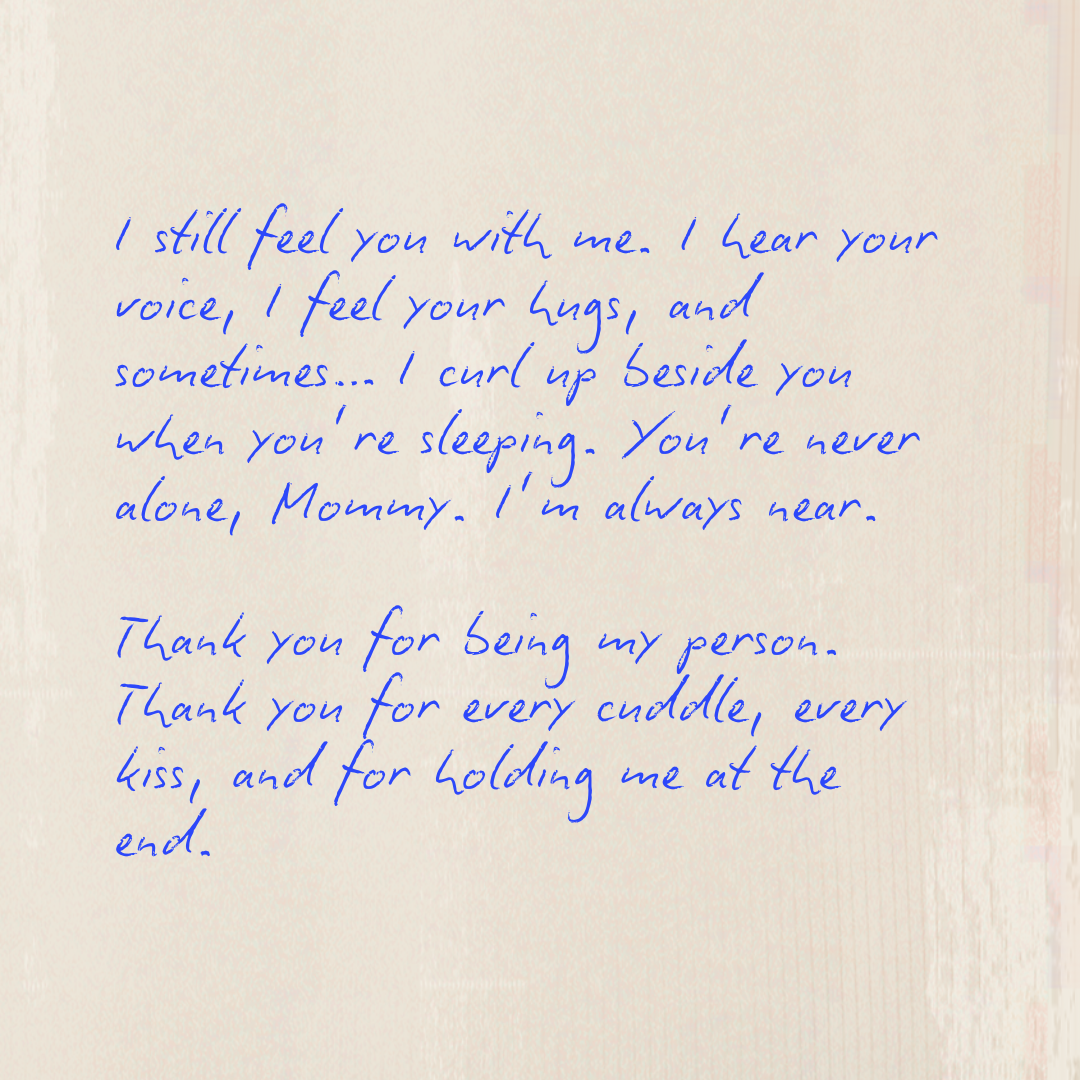 I still feel you with me. I hear your
voice, I feel your hugs, and
sometimes... I curl up beside you
when you're sleeping. You're never
alone, Mommy. I'm always near.

Thank you for being my person.
Thank you for every cuddle, every
kiss, and for holding me at the
end.